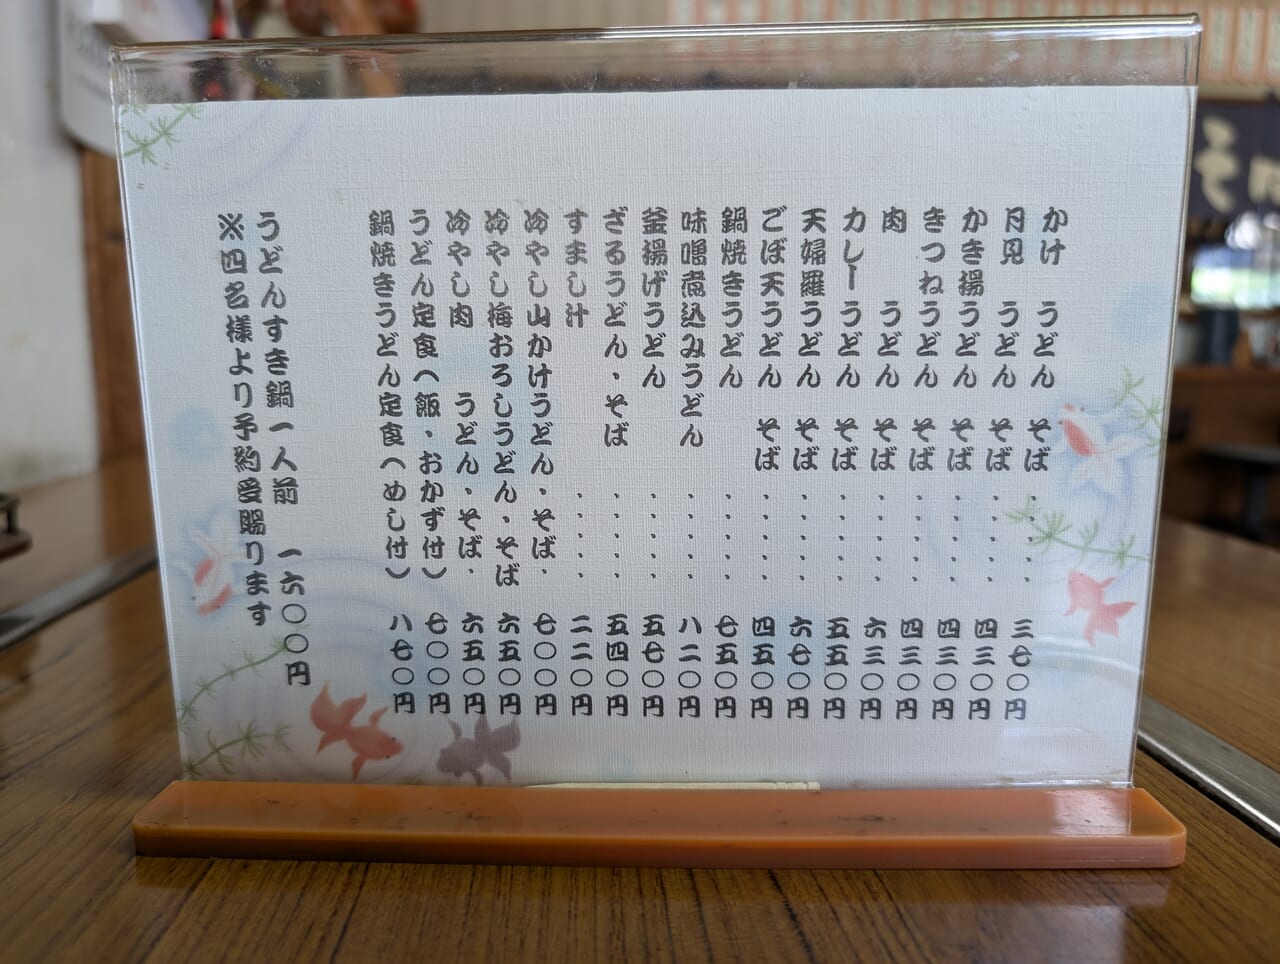 かけ うどん そば ・・・・ 三七〇円
月見 うどん そば ・・・・ 四三〇円
かき揚 うどん そば ・・・・ 四三〇円
きつね うどん そば ・・・・ 四三〇円
肉 うどん そば ・・・・ 六三〇円
カレー うどん そば ・・・・ 五五〇円
天婦羅 うどん そば ・・・・ 六七〇円
ごぼ天 うどん そば ・・・・ 四五〇円
鍋焼きうどん ・・・・ 七五〇円
味噌煮込みうどん ・・・・ 八二〇円
釜揚げうどん ・・・・ 五七〇円
ざるうどん・そば ・・・・ 五四〇円
すまし汁 ・・・・ 二二〇円
冷やし山かけうどん・そば・ 七〇〇円
冷やし梅おろしうどん・そば 六五〇円
冷やし肉 うどん・そば・ 六五〇円
うどん定食(飯・おかず付) 七〇〇円
鍋焼きうどん定食(めし付) 八七〇円
うどんすき鍋一人前 一六〇〇円
※四名様より予約受賜ります
そ